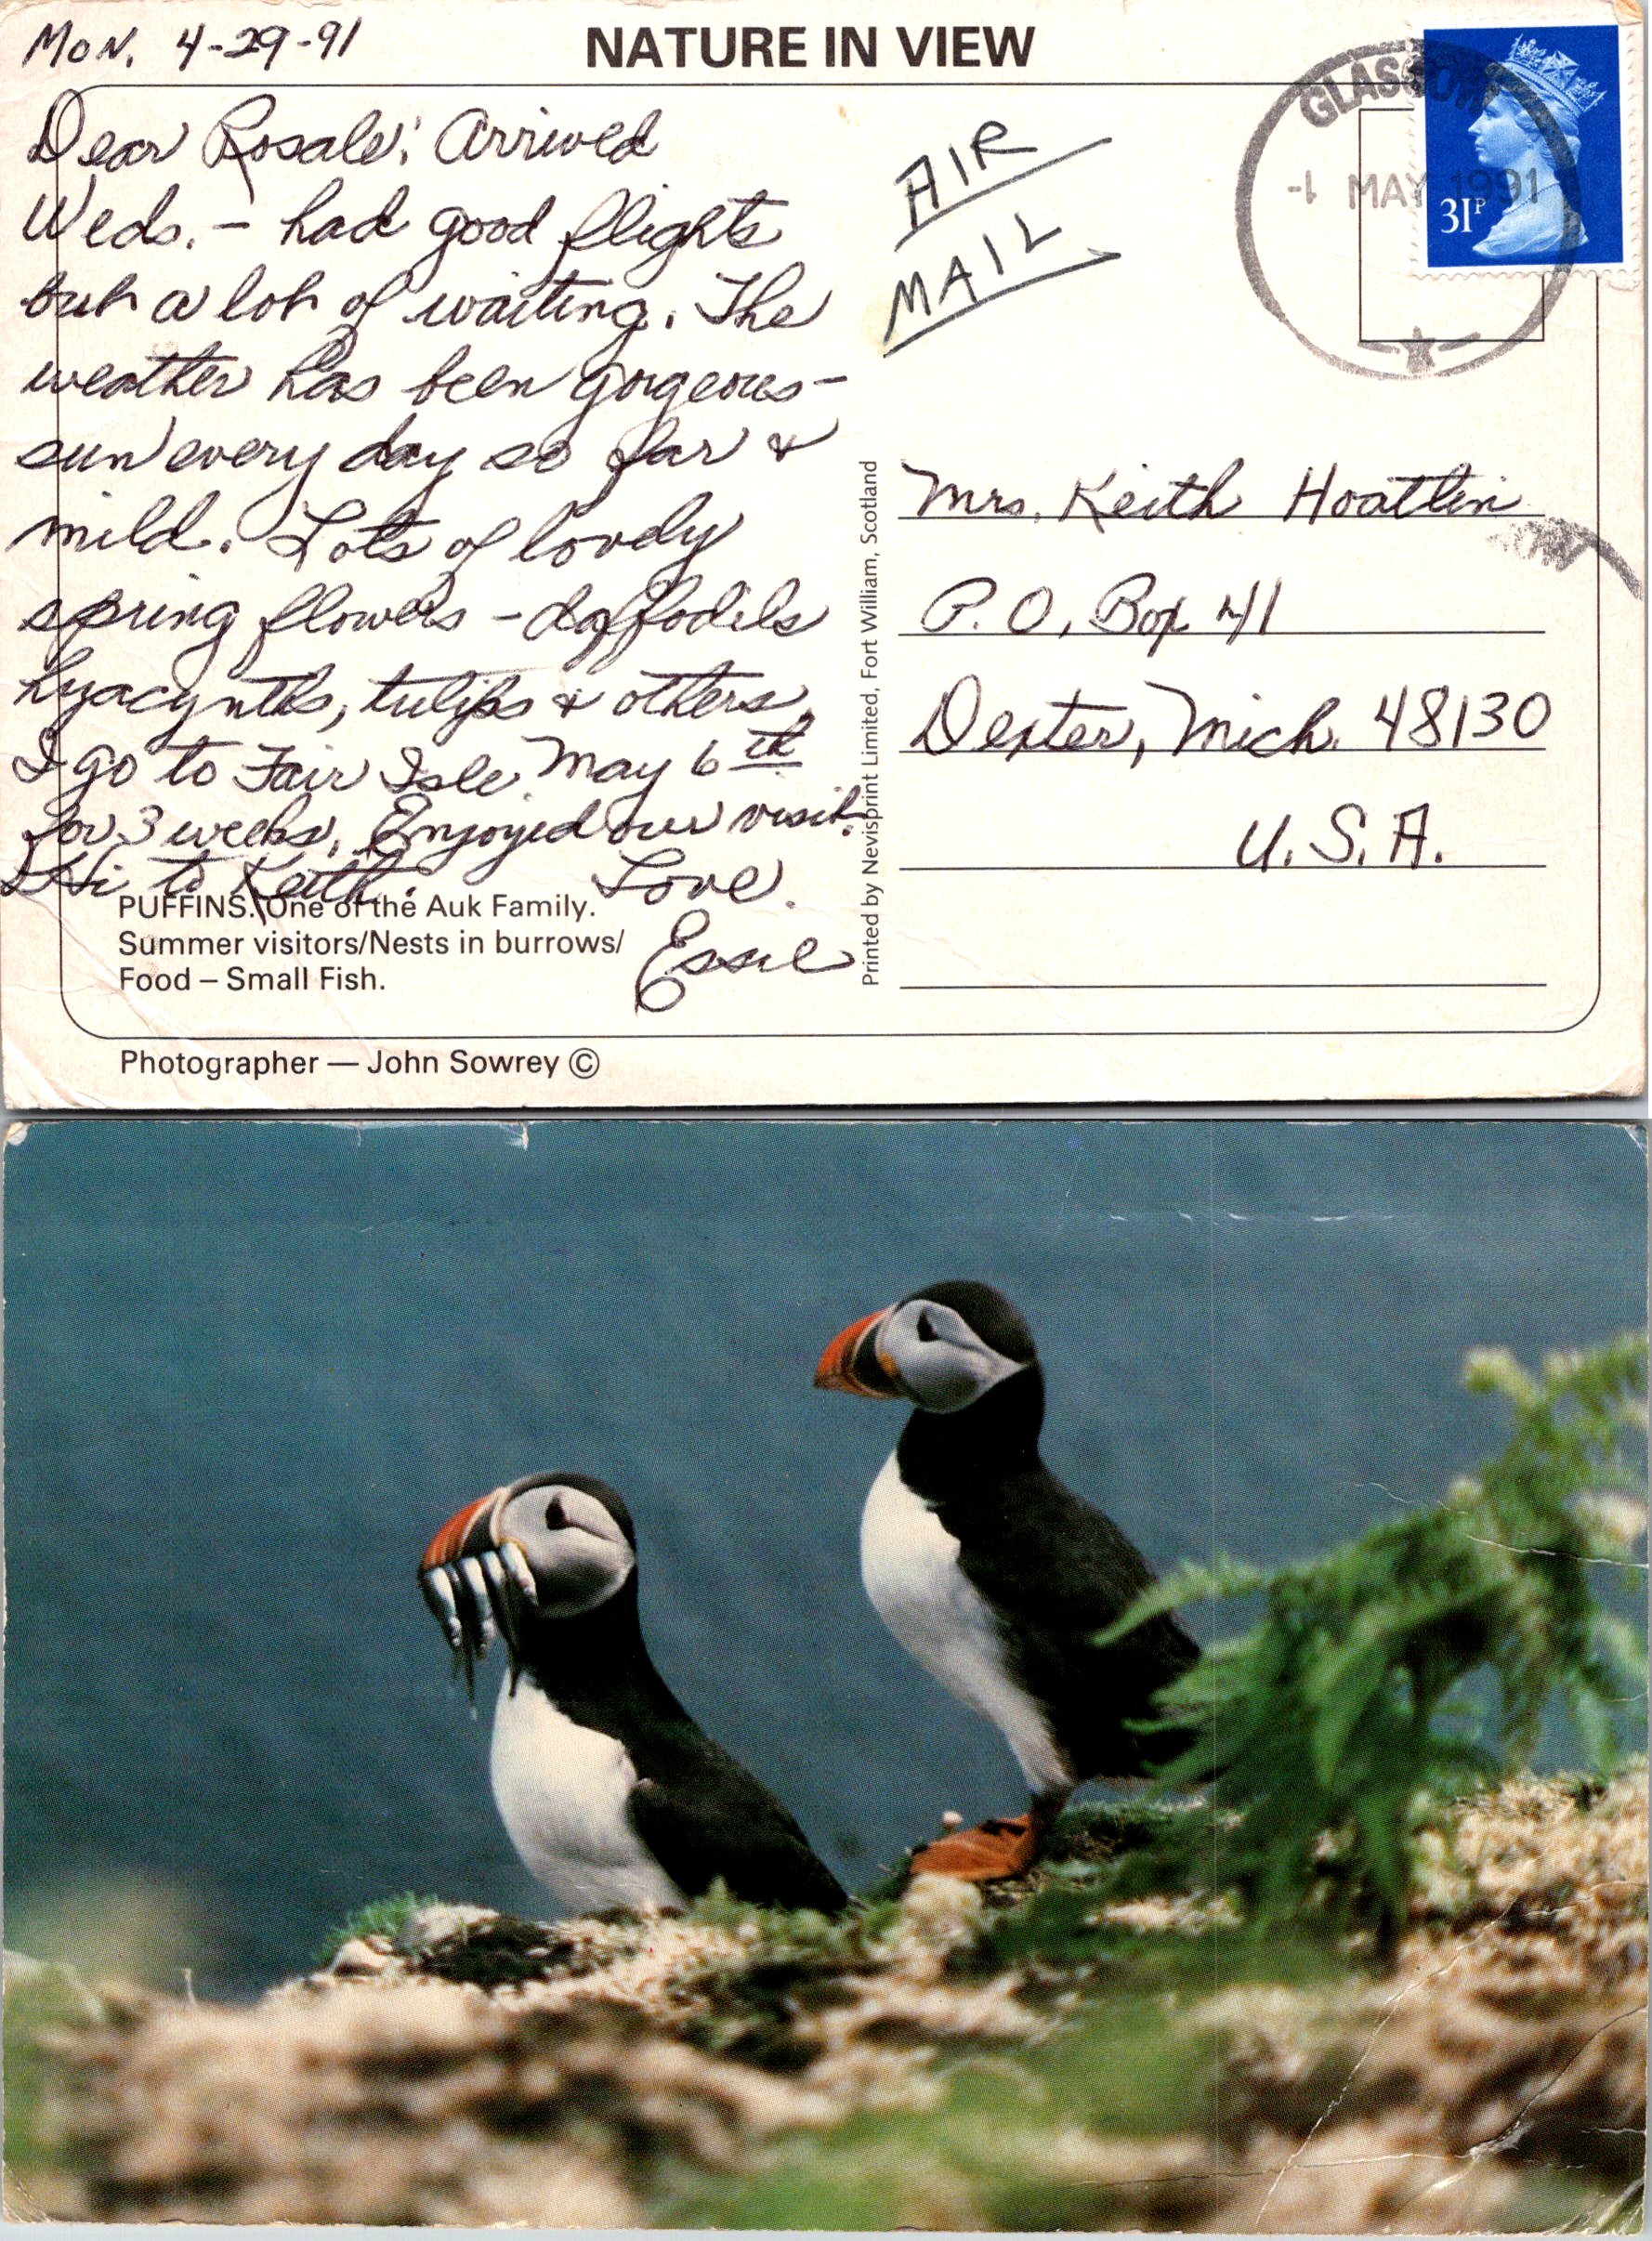 Mon. 4-29-91
NATURE IN VIEW
GLASGOW
-1 MAY 1991
31P
AIR
MAIL
Dear Rosale: Arrived
Weds. – had good flights
but a lot of waiting. The
weather has been gorgeous –
sun every day so far &
mild. Lots of lovely
spring flowers – daffodils
hyacynths, tulips & others.
I go to Fair Isle May 6th
for 3 weeks. Enjoyed our visit.
Hi to Keith. Love.
Essie
PUFFINS. One of the Auk Family.
Summer visitors/Nests in burrows/
Food – Small Fish.
Photographer — John Sowrey ©
Printed by Nevisprint Limited, Fort William, Scotland
Mrs. Keith Hoatlin
P.O. Box 41
Dexter, Mich. 48130
U.S.A.